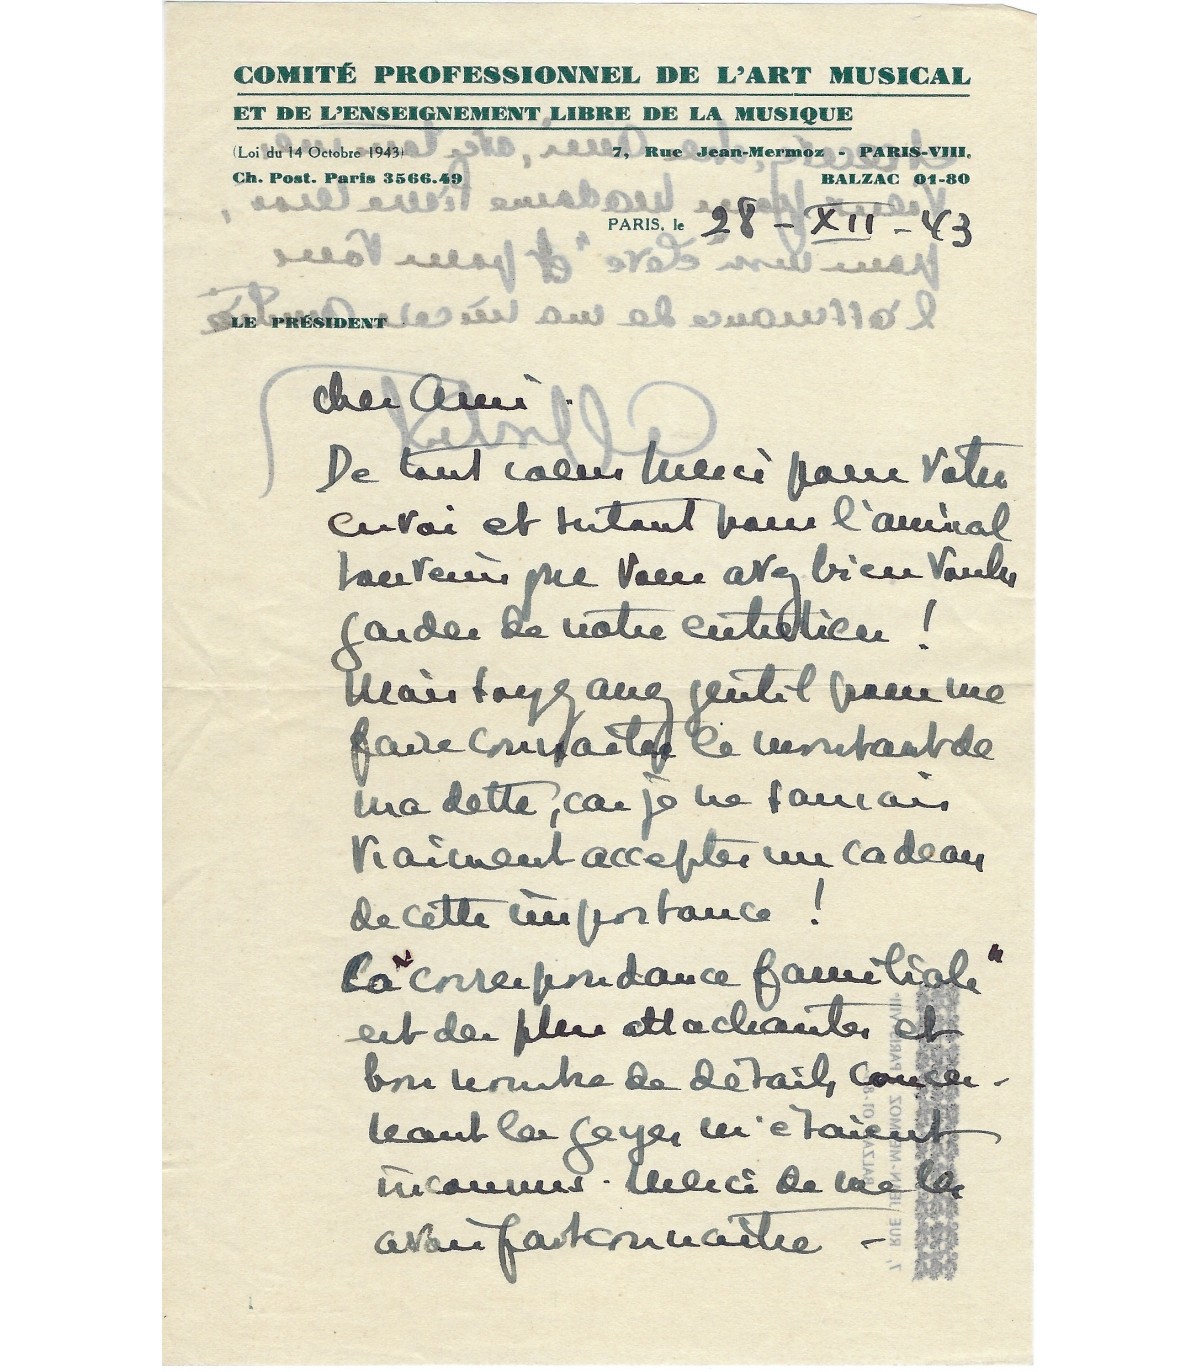 COMITÉ PROFESSIONNEL DE L'ART MUSICAL
ET DE L'ENSEIGNEMENT LIBRE DE LA MUSIQUE
(Loi du 14 Octobre 1943)
7, Rue Jean-Mermoz - PARIS-VIII.
Ch. Post. Paris 3566.49
BALZAC 01-80
PARIS, le 28 - XII - 43
LE PRÉSIDENT
cher Ami.
De tout coeur merci pour votre
envoi et surtout pour l'amical
souvenir que vous avez bien voulu
garder de notre entretien !
Mais soyez assez gentil pour me
faire connaître le montant de
ma dette, car je ne saurais
vraiment accepter un cadeau
de cette importance !
La "correspondance familiale"
est des plus attachantes et
bon nombre de détails concer-
nant les m'étaient
inconnus. Merci de me les
avoir fait connaître -
7, RUE JEAN-MERMOZ PARIS-VIII.
BALZAC 01-80